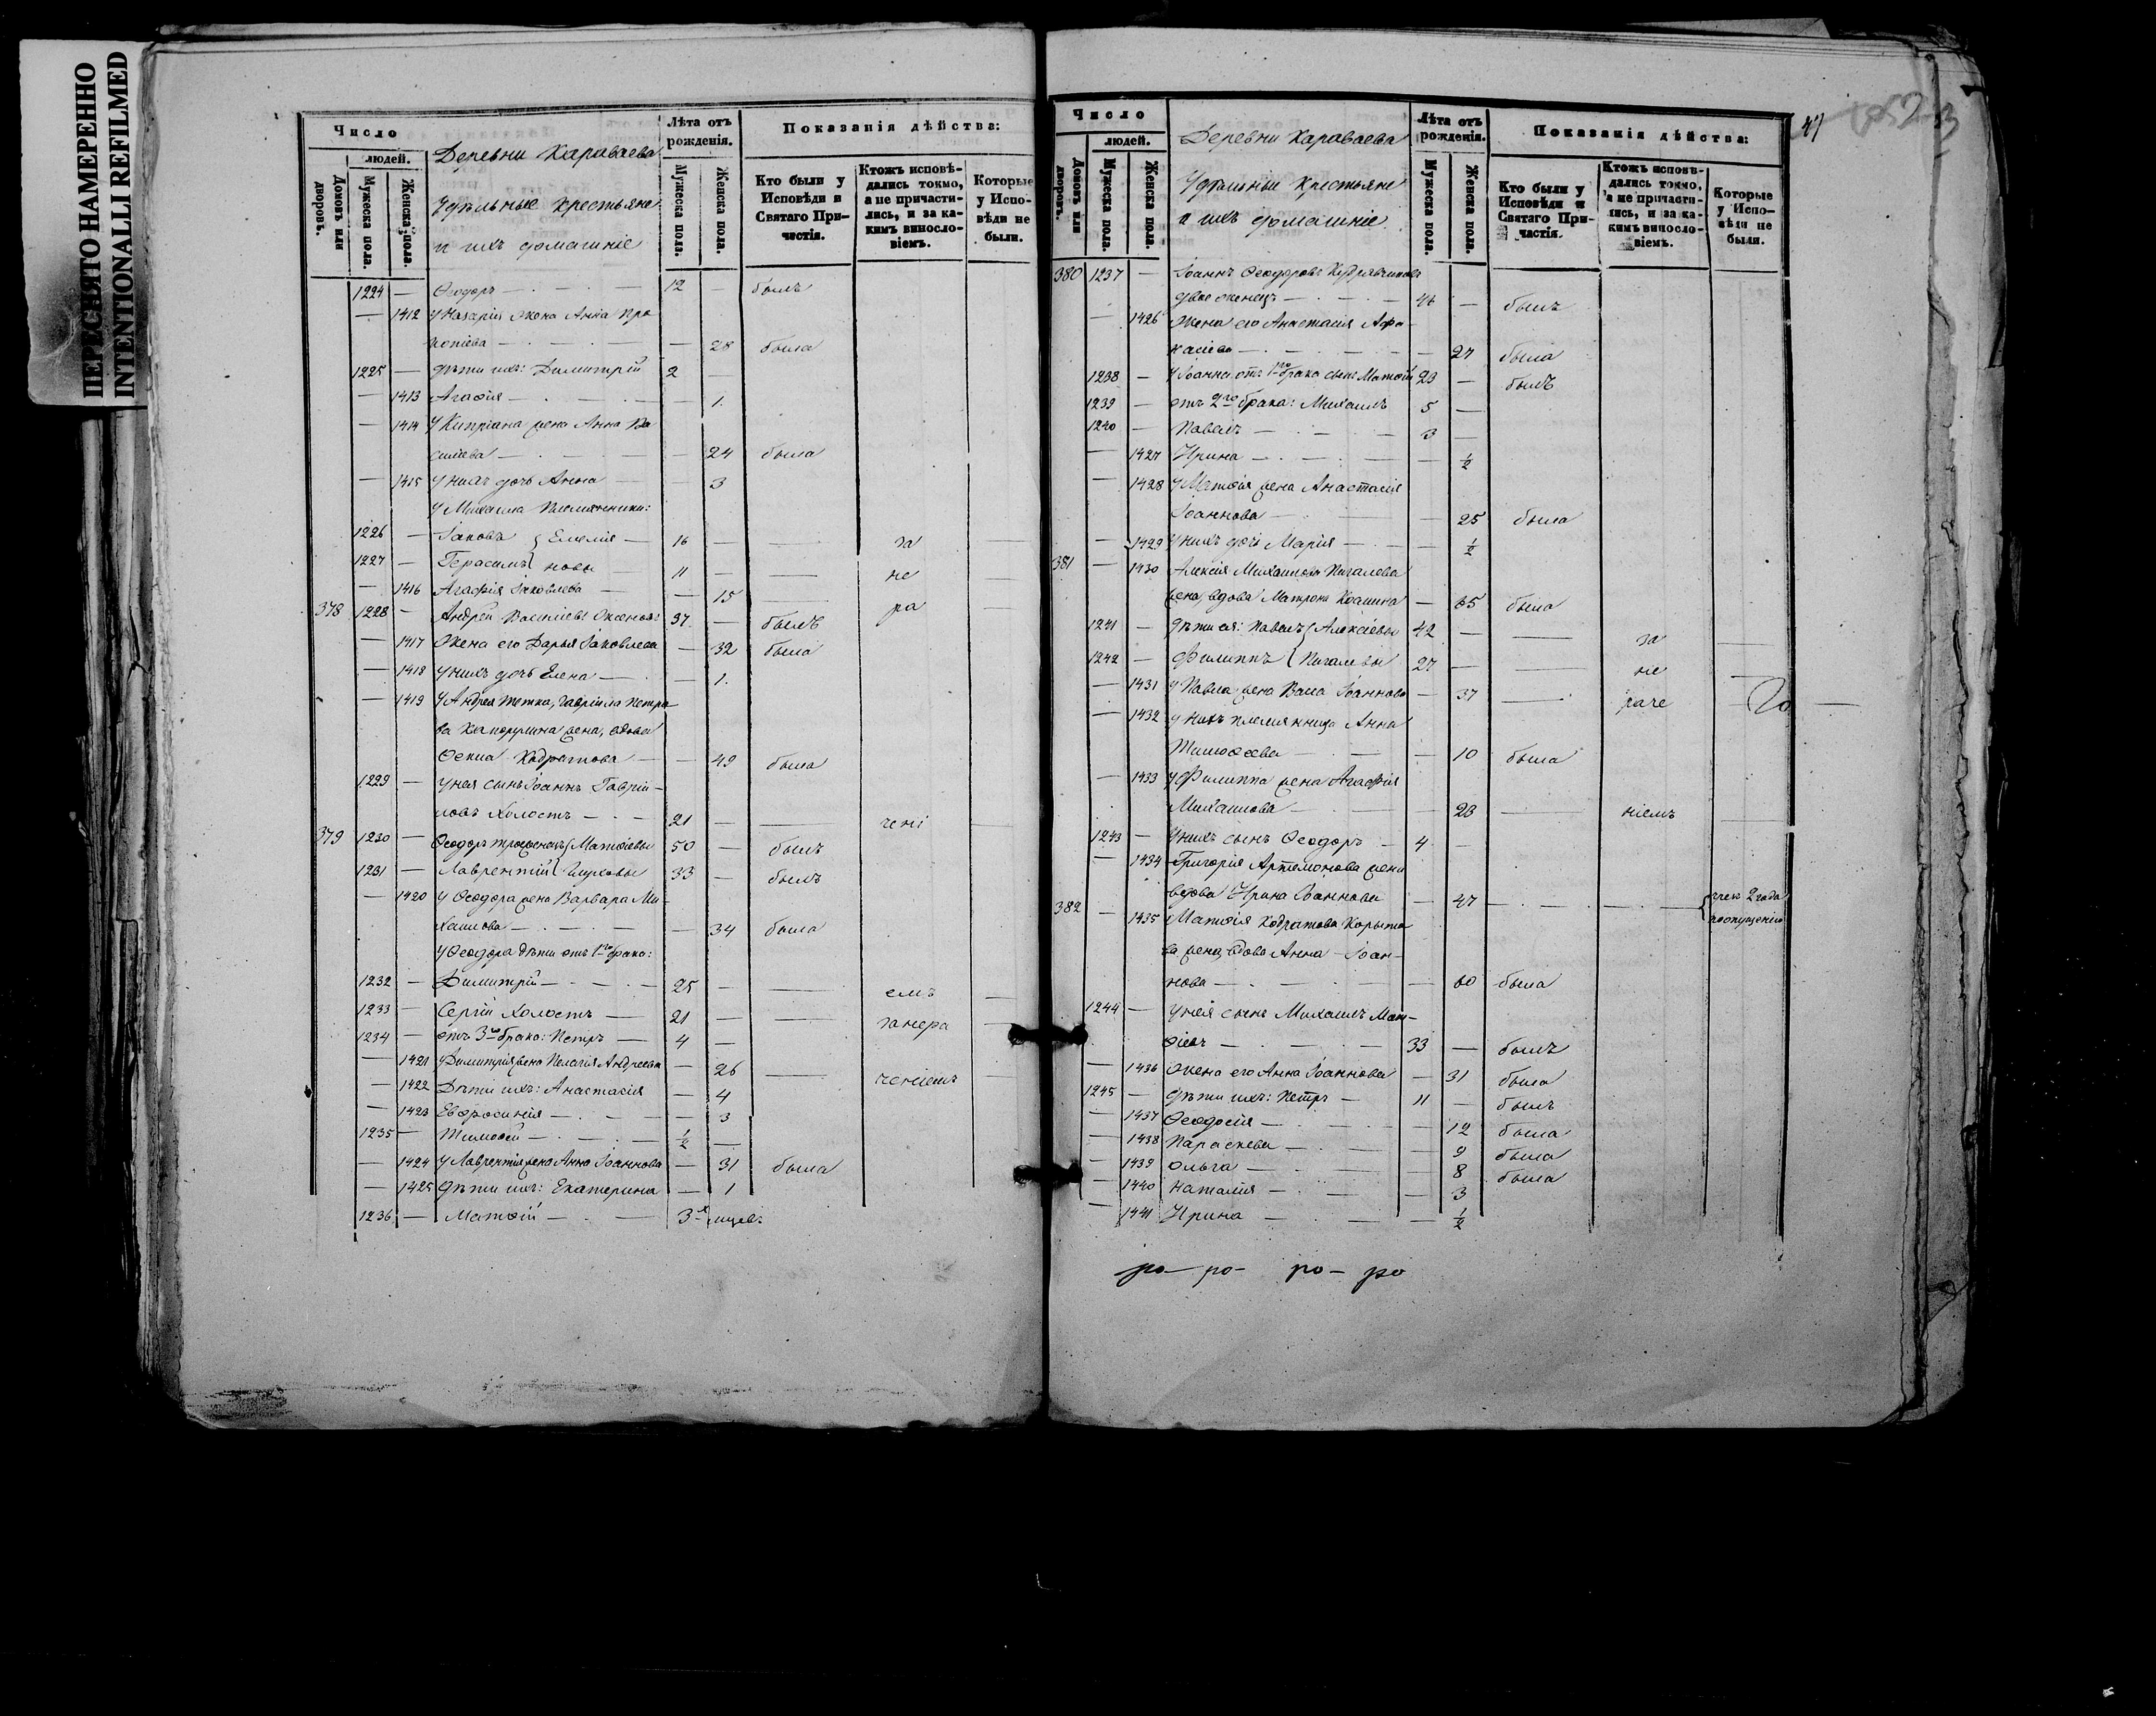 ПЕРЕСНЯТО НАМЕРЕННО
INTENTIONALLI REFILMED
Число
людей.
Домовъ или дворовъ.
Мужеска пола.
Женска пола.
Деревни Караваева
Удѣльные крестьяне
и ихъ домашніе
Лѣта отъ рожденія.
Мужеска пола.
Женска пола.
Показанія дѣйства:
Кто были у Исповѣди и Святаго При-
частія.
Ктожъ исповѣ-
дались токмо,
а не причасти-
лись, и за ка-
кимъ виносло-
віемъ.
Которые
у Испо-
вѣди не
были.
1224 — Ѳеодоръ — 12 — былъ
— 1412 У Назарія жена Анна Про
копіева — — 28 была
1225 — дѣти ихъ: Димитрій 2 —
— 1413 Агафія — — 1.
— 1414 У Кипріана жена Анна Ва
силіева — — 24 была
— 1415 У нихъ дочь Анна — 3
У Михаила племянники:
1226 — Іаковъ } Емелія — 16 — — за —
1227 — Герасимъ } новы — 11 — — не —
— 1416 Агафія Іаковлева — — 15 — ра —
378 1228 — Андрей Василіевъ 37. — былъ
— 1417 Жена его Дарья Іаковлева — 32 была
— 1418 У нихъ дочь Елена — — 1.
— 1419 У Андрея тетка, Гавріила Петро
ва жена, вдова
Кодратова — — 49 была
1229 — У нея сынъ Іоаннъ Гавріи-
ловъ холостъ — 21 — — чені —
379 1230 — Ѳеодоръ троеженецъ } Матѳіевы 50 — былъ
1231 — Лаврентій } Глуховы 33 — былъ
— 1420 У Ѳеодора жена Варвара Ми-
хаилова — — 34 была
У Ѳеодора дѣти отъ 1го брака:
1232 — Димитрій — 25 — — емъ —
1233 — Сергій холостъ — 21 — — занера —
1234 — отъ 3го брака: Петръ — 4 —
— 1421 У Димитрія жена Пелагія Андреева — 26 — ченіемъ —
— 1422 Дѣти ихъ: Анастасія — 4
— 1423 Евфросинія — — 3
1235 — Тимоѳей — ½ —
— 1424 У Лаврентія жена Анна Іоаннова — 31 была
— 1425 Дѣти ихъ: Екатерина — 1
1236 — Матѳій — 3х мцевъ
Число
людей.
Домовъ или дворовъ.
Мужеска пола.
Женска пола.
Деревни Караваева
Удѣльные крестьяне
и ихъ домашніе
Лѣта отъ рожденія.
Мужеска пола.
Женска пола.
Показанія дѣйства:
Кто были у
Исповѣди и
Святаго При-
частія.
Ктожъ исповѣ-
дались токмо,
а не причасти-
лись, и за ка-
кимъ виносло-
віемъ.
Которые
у Испо-
вѣди не
были.
47
380 1237 — Іоаннъ Ѳеодоровъ Кудрявчиковъ
двоеженецъ — 46 — былъ
— 1426 Жена его Анастасія Афа-
насіева — — 27 была
1238 — У Іоанна отъ 1го брака сынъ Матѳій 23 — былъ
1239 — отъ 2го брака: Михаилъ 5 —
1240 — Павелъ — 3 —
— 1427 Ирина — — ½
— 1428 У Матѳія жена Анастасія
Іоаннова — — 25 была
— 1429 У нихъ дочь Марія — — ½
381 — 1430 Алексія Михаилова Пигалева
жена, вдова Матрона — 65 была
1241 — Дѣти ея: Павелъ } Алексіевы 42 — — за —
1242 — Филиппъ } Пигалевы 27 — — не —
— 1431 У Павла жена Васса Іоаннова — 37 — раче —
— 1432 У нихъ племянница Анна
Тимоѳеева — — 10 была
— 1433 У Филиппа жена Агафія
Михаилова — — 23 — ніемъ —
1243 — У нихъ сынъ Ѳеодоръ — 4 —
— 1434 Григорія Артемонова жена
вдова Ирина Іоаннова — 47 — — 2 года
382 — 1435 Матѳія Кодратова Корыто
ва жена, вдова Анна Іоан-
нова — — 60 была
1244 — У нея сынъ Михаилъ Мат-
ѳіевъ — 33 — былъ
— 1436 Жена его Анна Іоаннова — 31 была
1245 — Дѣти ихъ: Петръ — 11 — былъ
— 1437 Ѳеодосія — — 12 была
— 1438 Параскева — — 9 была
— 1439 Ольга — — 8 была
— 1440 Наталія — — 3
— 1441 Ирина — — ½
ро- ро- ро- ро